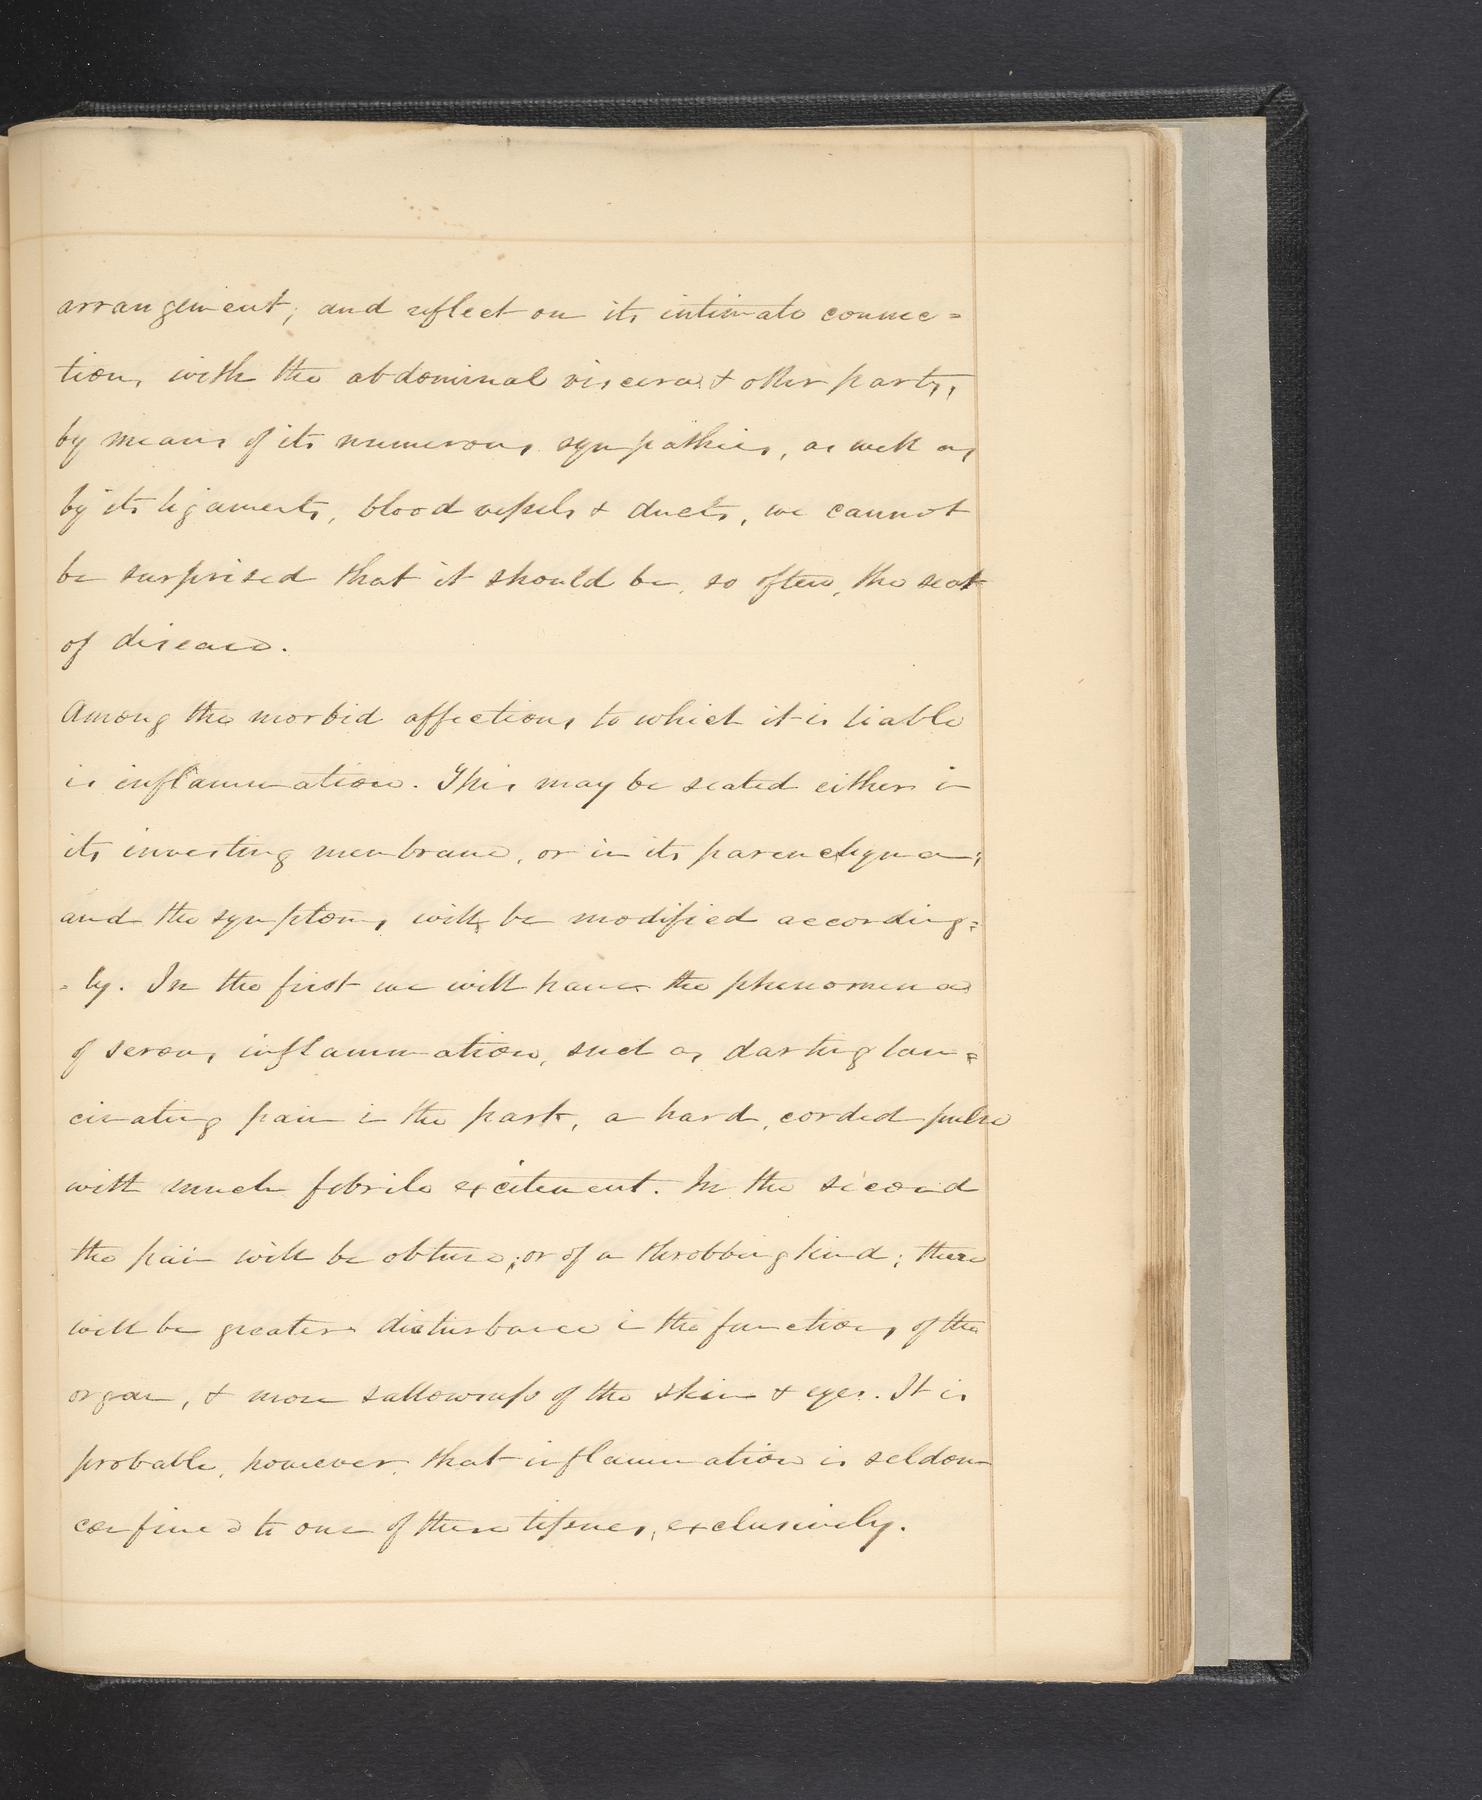 arrangement; and reflect on its intimate connec=
tion, with the abdominal viscera & other parts,
by means of its numerous sympathies, as well as
by its ligaments, blood vessels & ducts, we cannot
be surprised that it should be, so often, the seat
of disease.
Among the morbid affections to which it is liable
is inflammation. This may be seated either in
its investing membrane, or in its parenchyma;
and the symptoms will be modified according=
=ly. In the first we will have the phenomena
of serous inflammation, such as darting lan=
cinating pain in the part, a hard, corded pulse
with much febrile excitement. In the second
the pain will be obtuse; or of a throbbing kind; there
will be greater disturbance in the functions of the
organ, & more sallowness of the skin & eyes. It is
probable, however, that inflammation is seldom
confined to one of these tissues, exclusively.